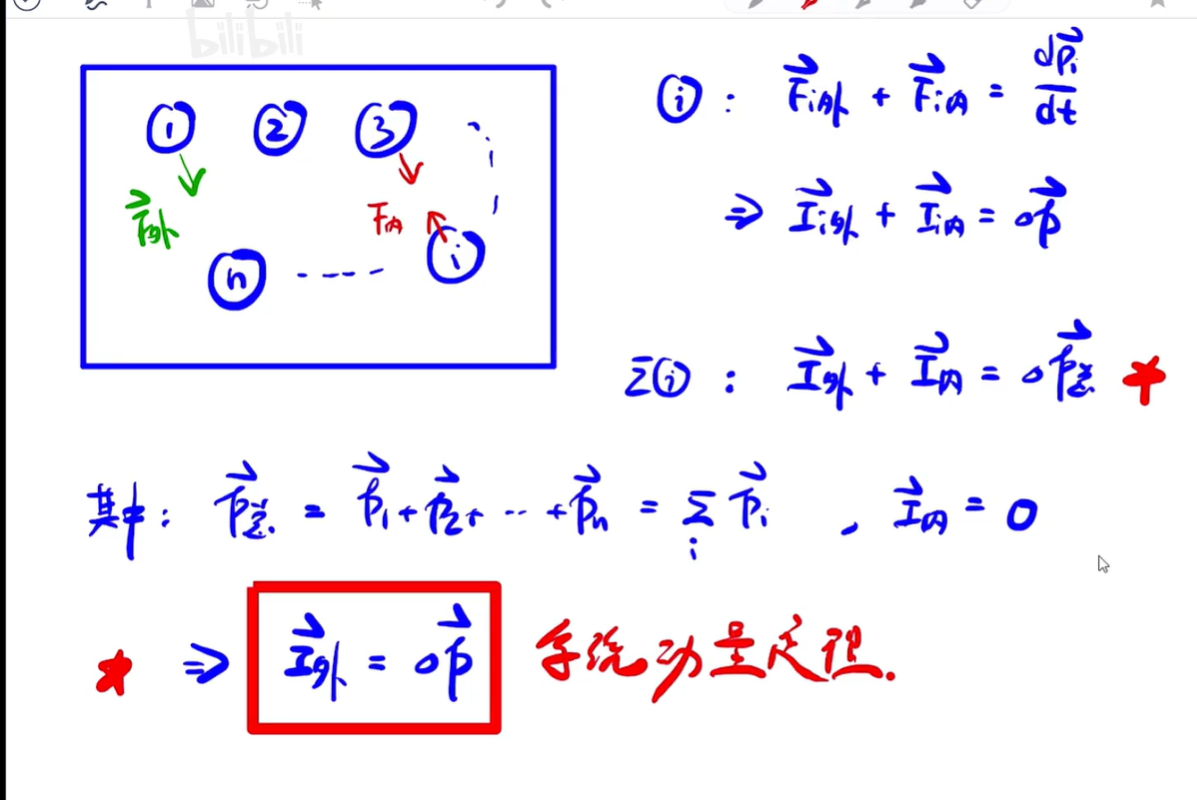 bilibili
① ② ③
F⃗外 F内
ⓝ ---- ⓘ
ⓘ : F⃗i外 + F⃗i内 = dp⃗i/dt
⇒ I⃗i外 + I⃗i内 = Δp⃗
Σⓘ : I⃗外 + I⃗内 = Δp⃗总 ★
其中: p⃗总 = p⃗1 + p⃗2 + ... + p⃗n = Σi p⃗i , I⃗内 = 0
★ ⇒ I⃗外 = Δp⃗ 系统动量定理.